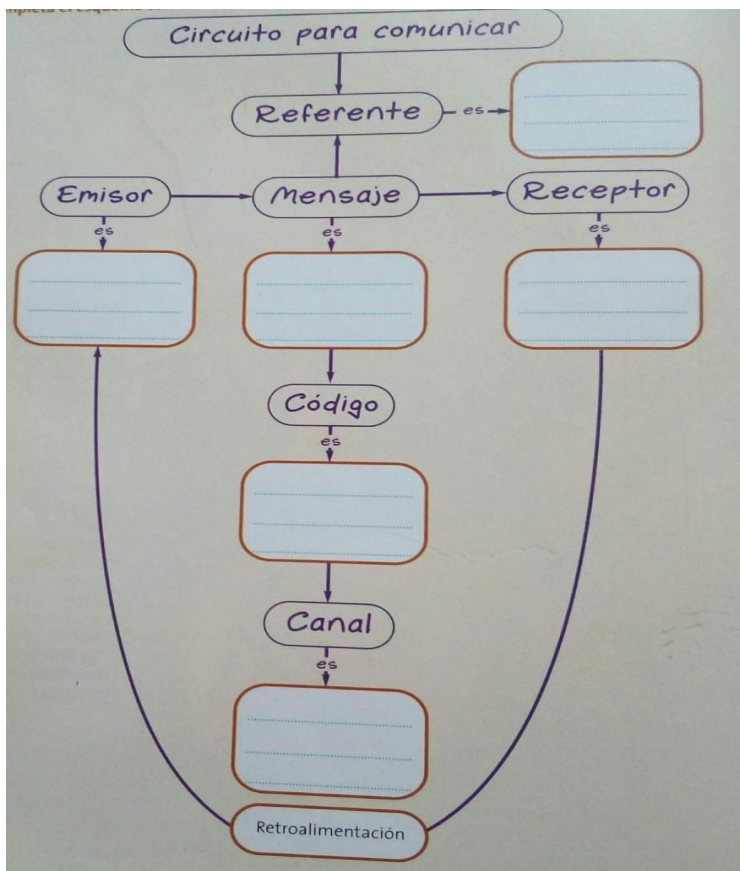 Circuito para comunicar
Referente
es
Emisor
Mensaje
Receptor
es
es
es
Código
es
Canal
es
Retroalimentación